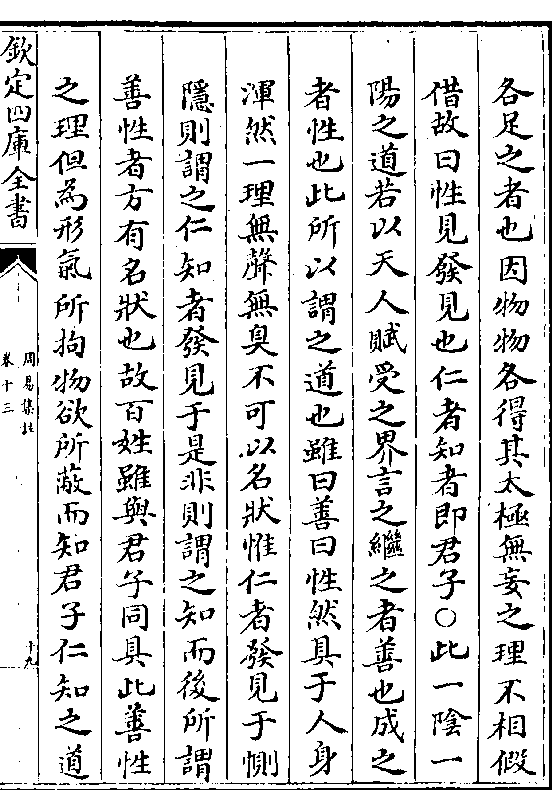 各足之者也因物物各得其太極無妄之理不相假
借故曰性見發見也仁者知者即君子○此一陰一
陽之道若以天人賦受之界言之繼之者善也成之
者性也此所以謂之道也雖曰善曰性然具于人身
渾然一理無聲無臭不可以名狀惟仁者發見于惻
隱則謂之仁知者發見于是非則謂之知而後所謂
善性者方有名狀也故百姓雖與君子同具此善性
之理但為形氣所拘物欲所蔽而知君子仁知之道
欽定四庫全書
周易集註
卷十三
十九